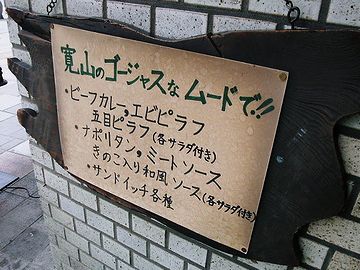 寛山のゴージャスな ムードで!!
・ビーフカレー,エビピラフ
五目ピラフ(各サラダ付き)
・ナポリタン,ミートソース
きのこ入り和風ソース(各サラダ付き)
・サンドイッチ各種